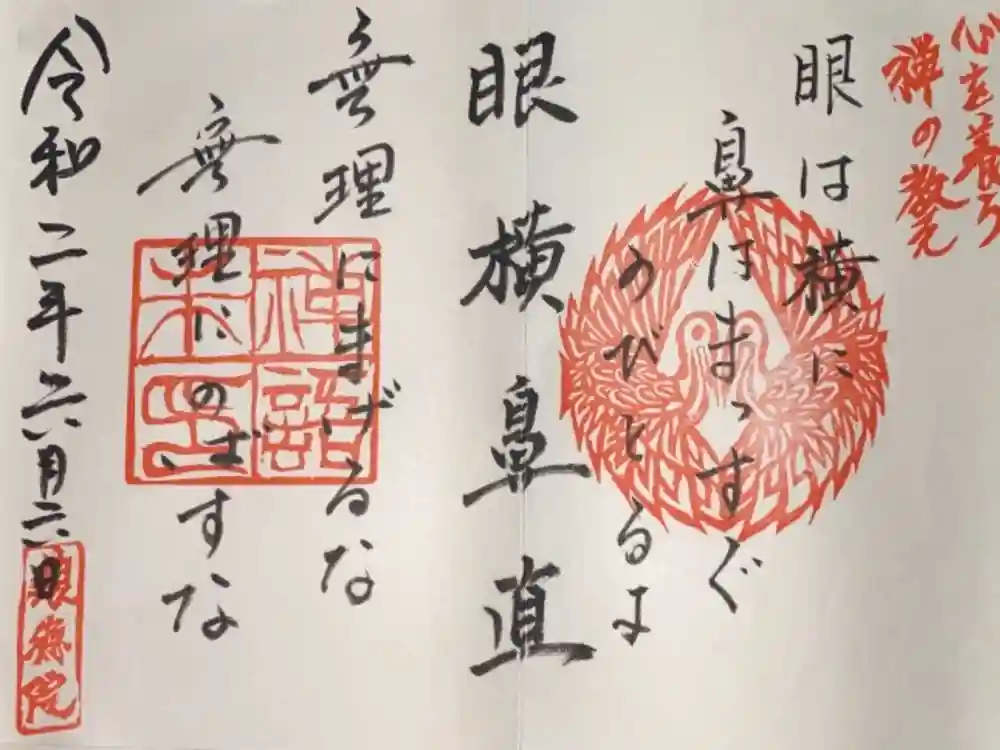 心を養う
禅の教え
眼は横に
鼻はまっすぐ
のびとるよ
眼横鼻直
無理にまげるな
無理にのばすな
禅語朱印
令和二年六月六日
院